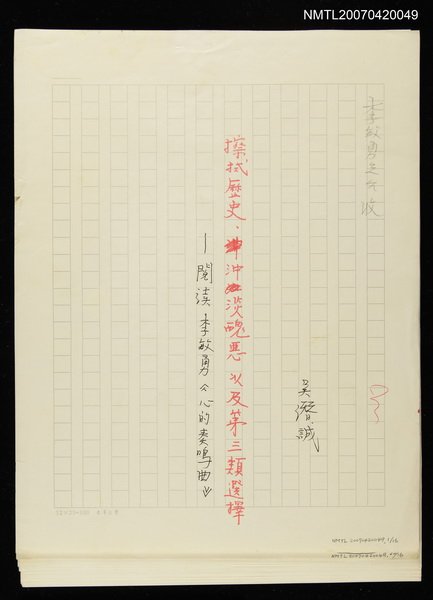 NMTL20070420049
李敏勇先生收
擦拭歷史、沖淡醜惡以及第三類選擇
—閱讀李敏勇《心的奏鳴曲》
吳潛誠
NMTL20070420049,1/16